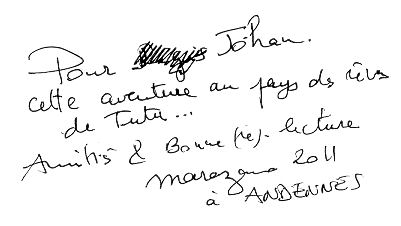 Pour Johan.
cette aventure au pays des rêves
de Tutu...
Amitiés & Bonne (re). lecture
Marazano 2011
à ANDENNES